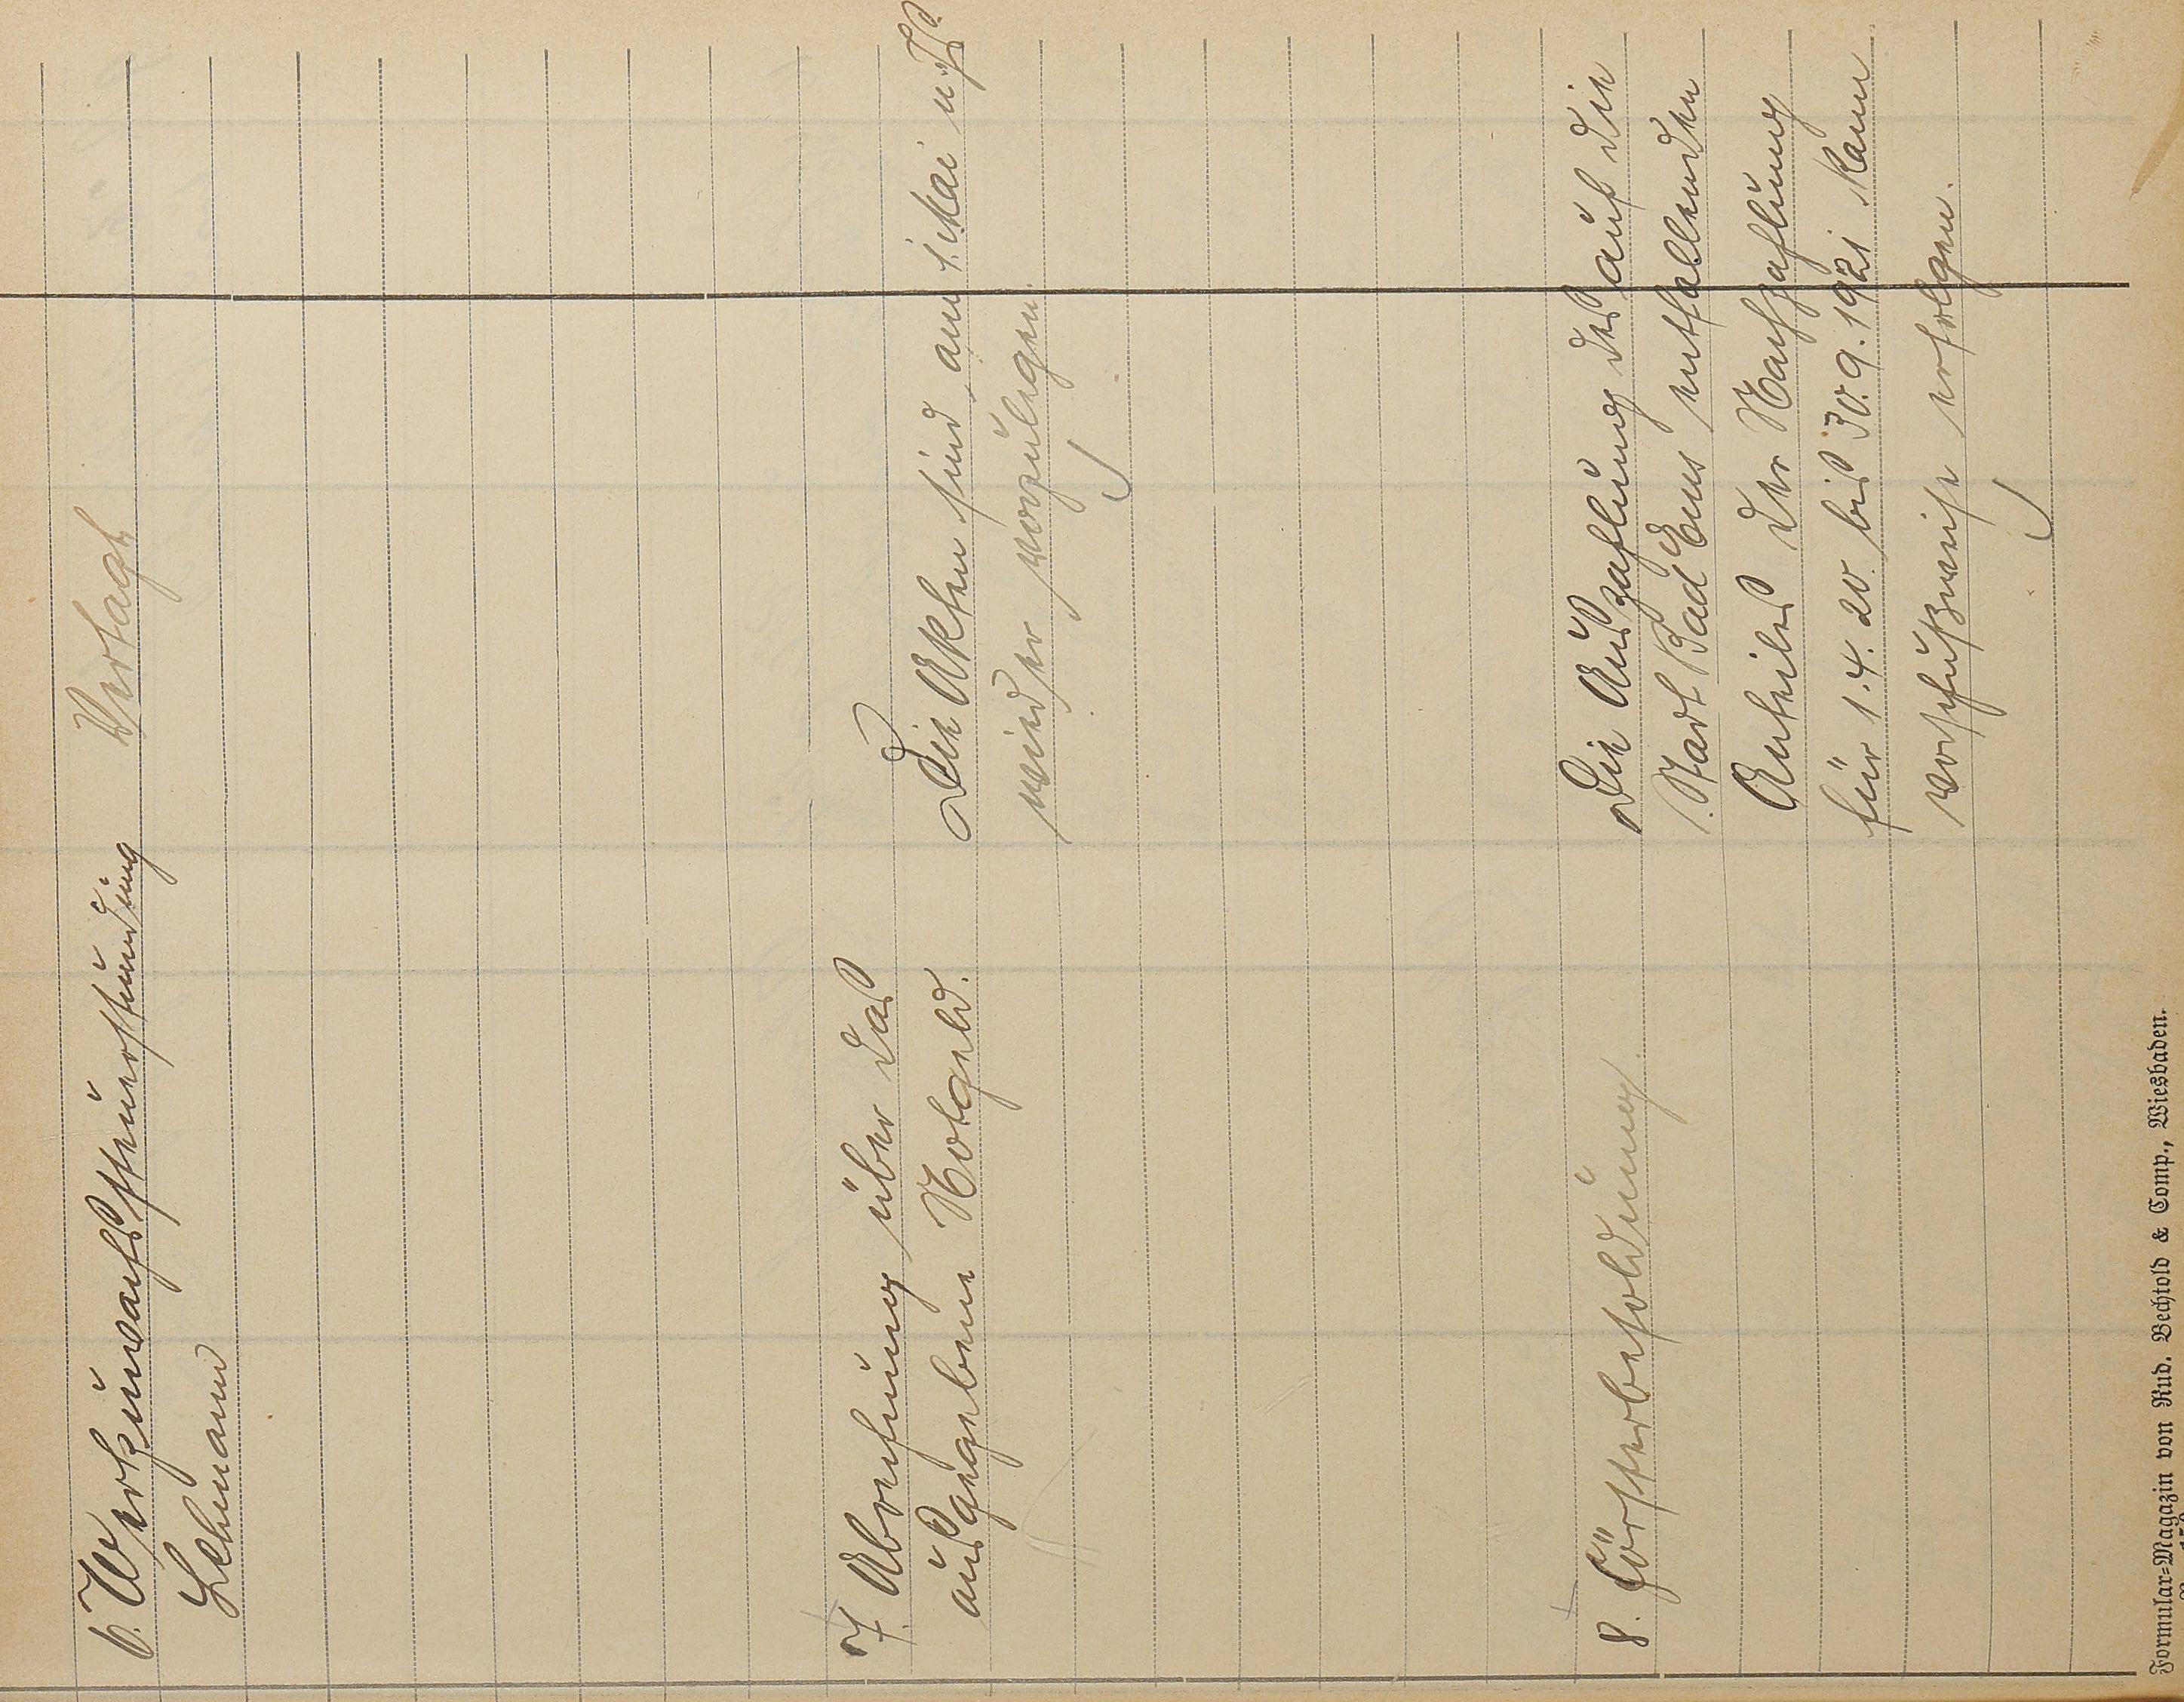 6. Wertzuwachssteuerstundung
Lehmann
Vertagt
7. Abrechnung über das
ausgegebene Notgeld.
Die Akten sind am 1. Mai u. Js.
wieder vorzulegen.
8. Försterbesoldung.
Die Auszahlung des auf die
Stadt Bad Ems entfallenden
Anteiles der Nachzahlung
für 1.4.20. bis 30.9.1921 kann
vorschußweise erfolgen.
Formular-Magazin von Rud. Bechtold & Comp., Wiesbaden.